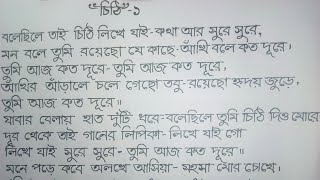 "চিঠি"-১
বলেছিলে তাই চিঠি লিখে যাই-কথা আর সুরে সুরে,
মন বলে তুমি রয়েছো যে কাছে-আঁখি বলে কত দূরে।
তুমি আজ কত দূরে-তুমি আজ কত দূরে,
আঁখির আঁড়ালে চলে গেছো তবু-রয়েছো হৃদয় জুড়ে,
তুমি আজ কত দূরে॥
যাবার বেলায় হাত দুটি ধরে-বলেছিলে তুমি চিঠি দিও মোরে
দূর থেকে তাই গানের লিপিকা-লিখে যাই গো
লিখে যাই সুরে সুরে-তুমি আজ কত দূরে॥
মনে পড়ে কবে অলখে আসিয়া-সহসা মোর চোখে।